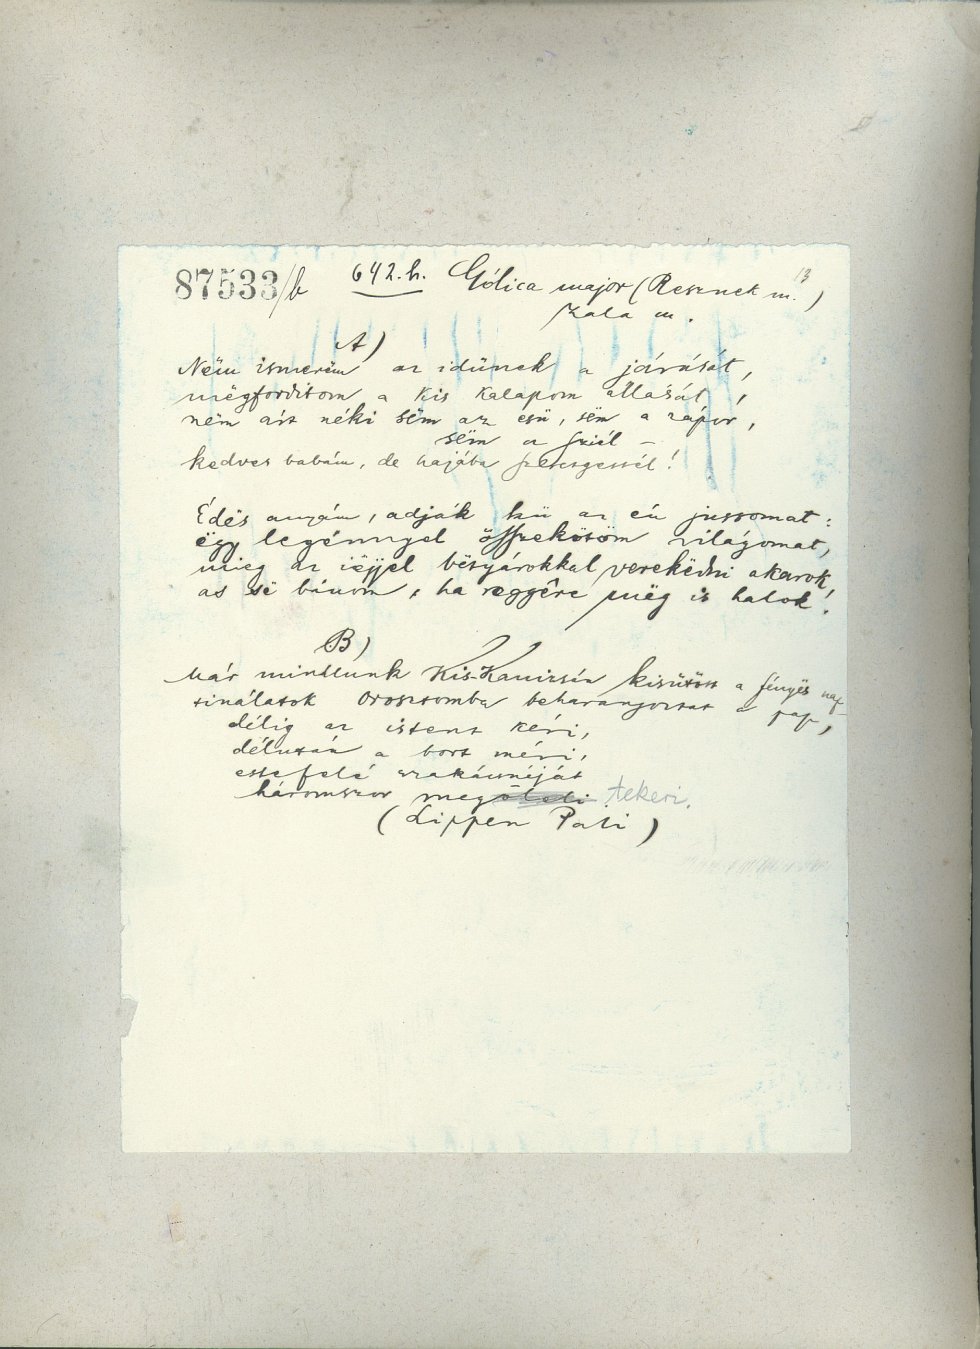 87533/b 642.h. Gólica major (Resznek m.)
13
Zala m.
A)
Nëm ismerëm az idünek a járását,
mëgforditom a kis kalapom állását,
nëm árt néki sëm az esü, sëm a zápor,
sëm a sziél –
kedves babám, de hajába szeretgettél!
Édës anyám, adják kü az én jussomat:
ëgy legénnyel össekötöm világomat,
mieg az iéjjel bëtyárokkal verekëdni akarok,
az së bánom, ha reggêre mëg is halok!
B)
Már mindünk Kis-Kanizsán kisütött a fényës nap
tinálatok Orosztomba beharangoztat a pap,
délig az istent kéri,
délután a bort méri,
estefelé szakácsnéját
háromszor megöleli tekeri.
(Lippen Pali)